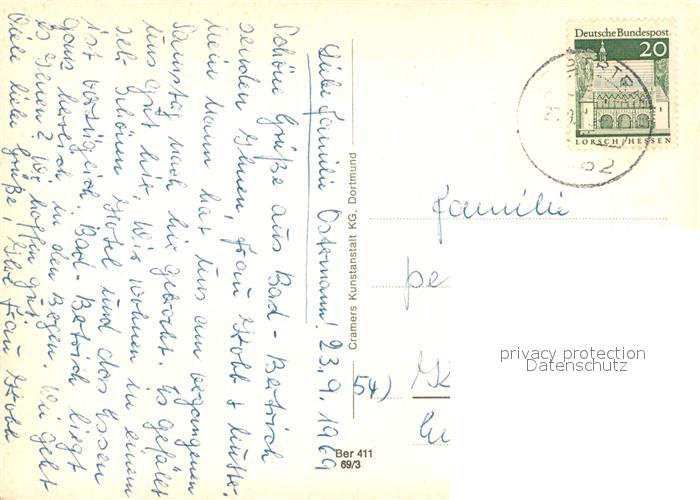 Liebe Familie Ostermann! 23.9.1969
Schöne Grüße aus Bad-Bertrich
senden Ihnen, Frau Kolb + Mutter.
Mein Mann hat uns am vergangenen
Samstag nach hier gebracht. Es gefällt
uns gut hier, wir wohnen in einem
sehr schönen Hotel und das Essen
ist vorzüglich. Bad-Bertrich liegt
ganz herrlich in den Bergen. Wie geht
es Ihnen? Wir hoffen gut.
Viele liebe Grüße, Ihre Frau Kolb
Cramers Kunstanstalt KG. Dortmund
Deutsche Bundespost
20
LORSCH/HESSEN
Familie
54)
privacy protection
Datenschutz
Ber 411
69/3